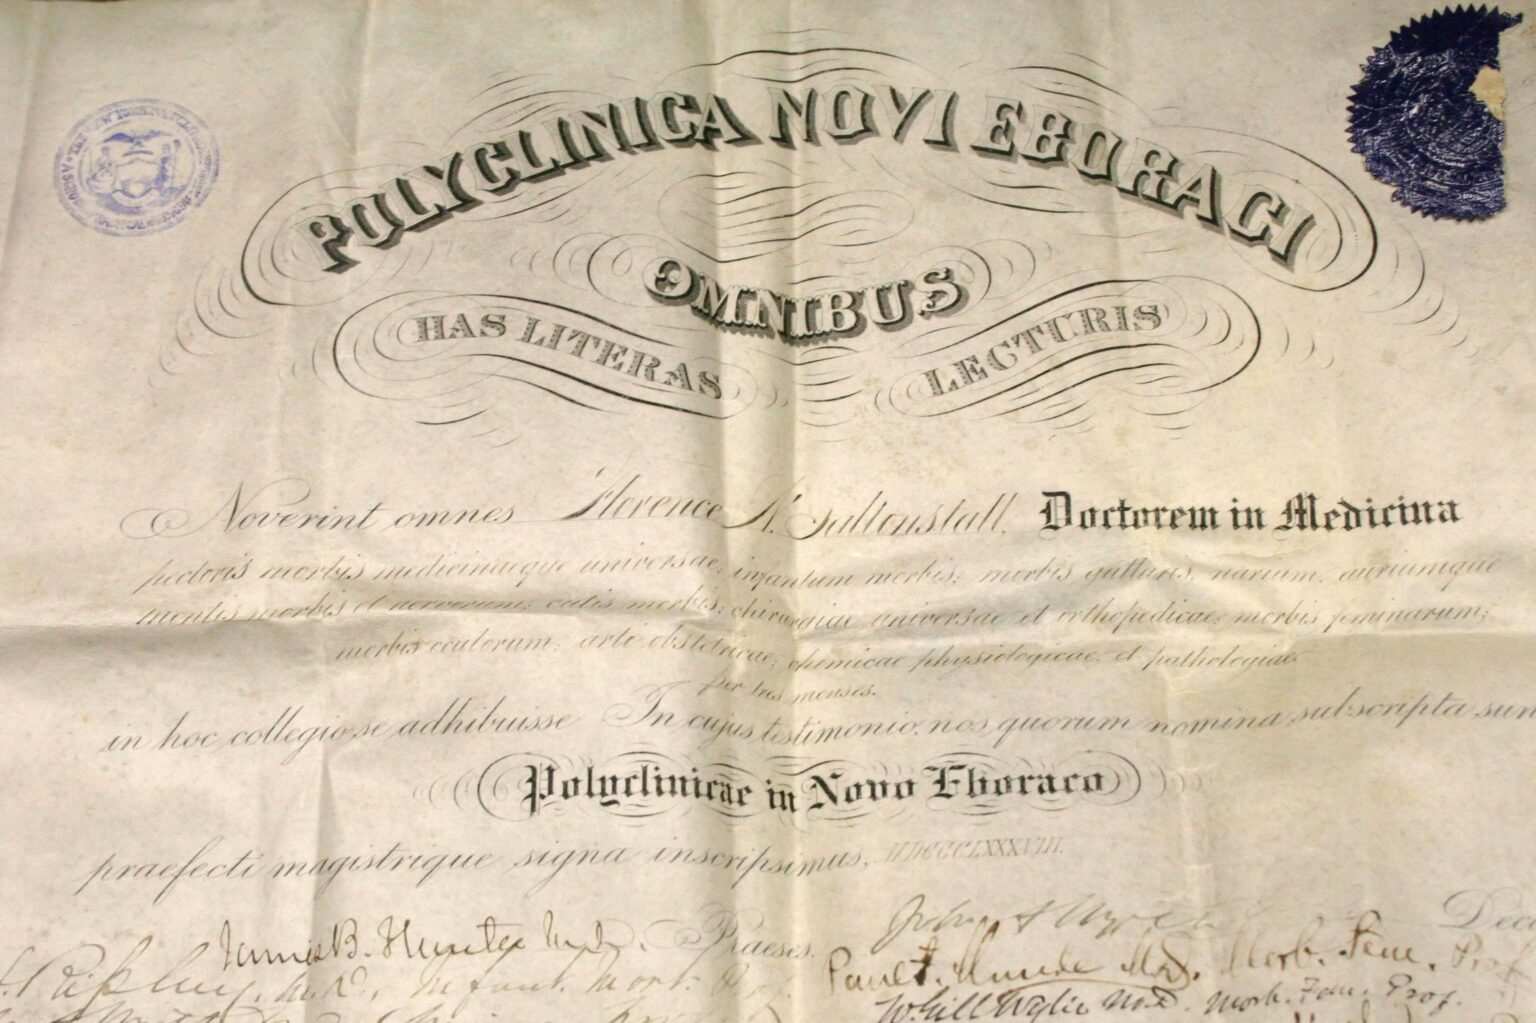 POLYCLINICA NOVI EBORACI
OMNIBUS
HAS LITERAS LECTURIS
Noverint omnes Florence N. Saltonstall. Doctorem in Medicina
pectoris morbis medicinaeque universae; infantum morbis; morbis gutturis, narium, auriumque
mentis morbis et nervorum; cutis morbis; chirurgiae universae et orthopedicae; morbis feminarum;
morbis oculorum; arti obstetricae; chemicae physiologicae, et pathologiae
per tres menses.
in hoc collegio se adhibuisse In cujus testimonio, nos quorum nomina subscripta sun
Polyclinicae in Novo Eboraco
praefecti magistrique signa inscripsimus, MDCCCLXXXVIII.
James B. Hunter M.D. Praeses.
Ripley, M.D., Infant. Morb. Prof.
Paul F. Munde M.D. Morb. Fem. Prof
W. Gill Wylie M.D. Morb. Fem. Prof.